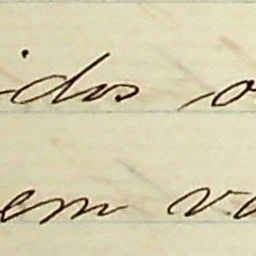 idos o
em va